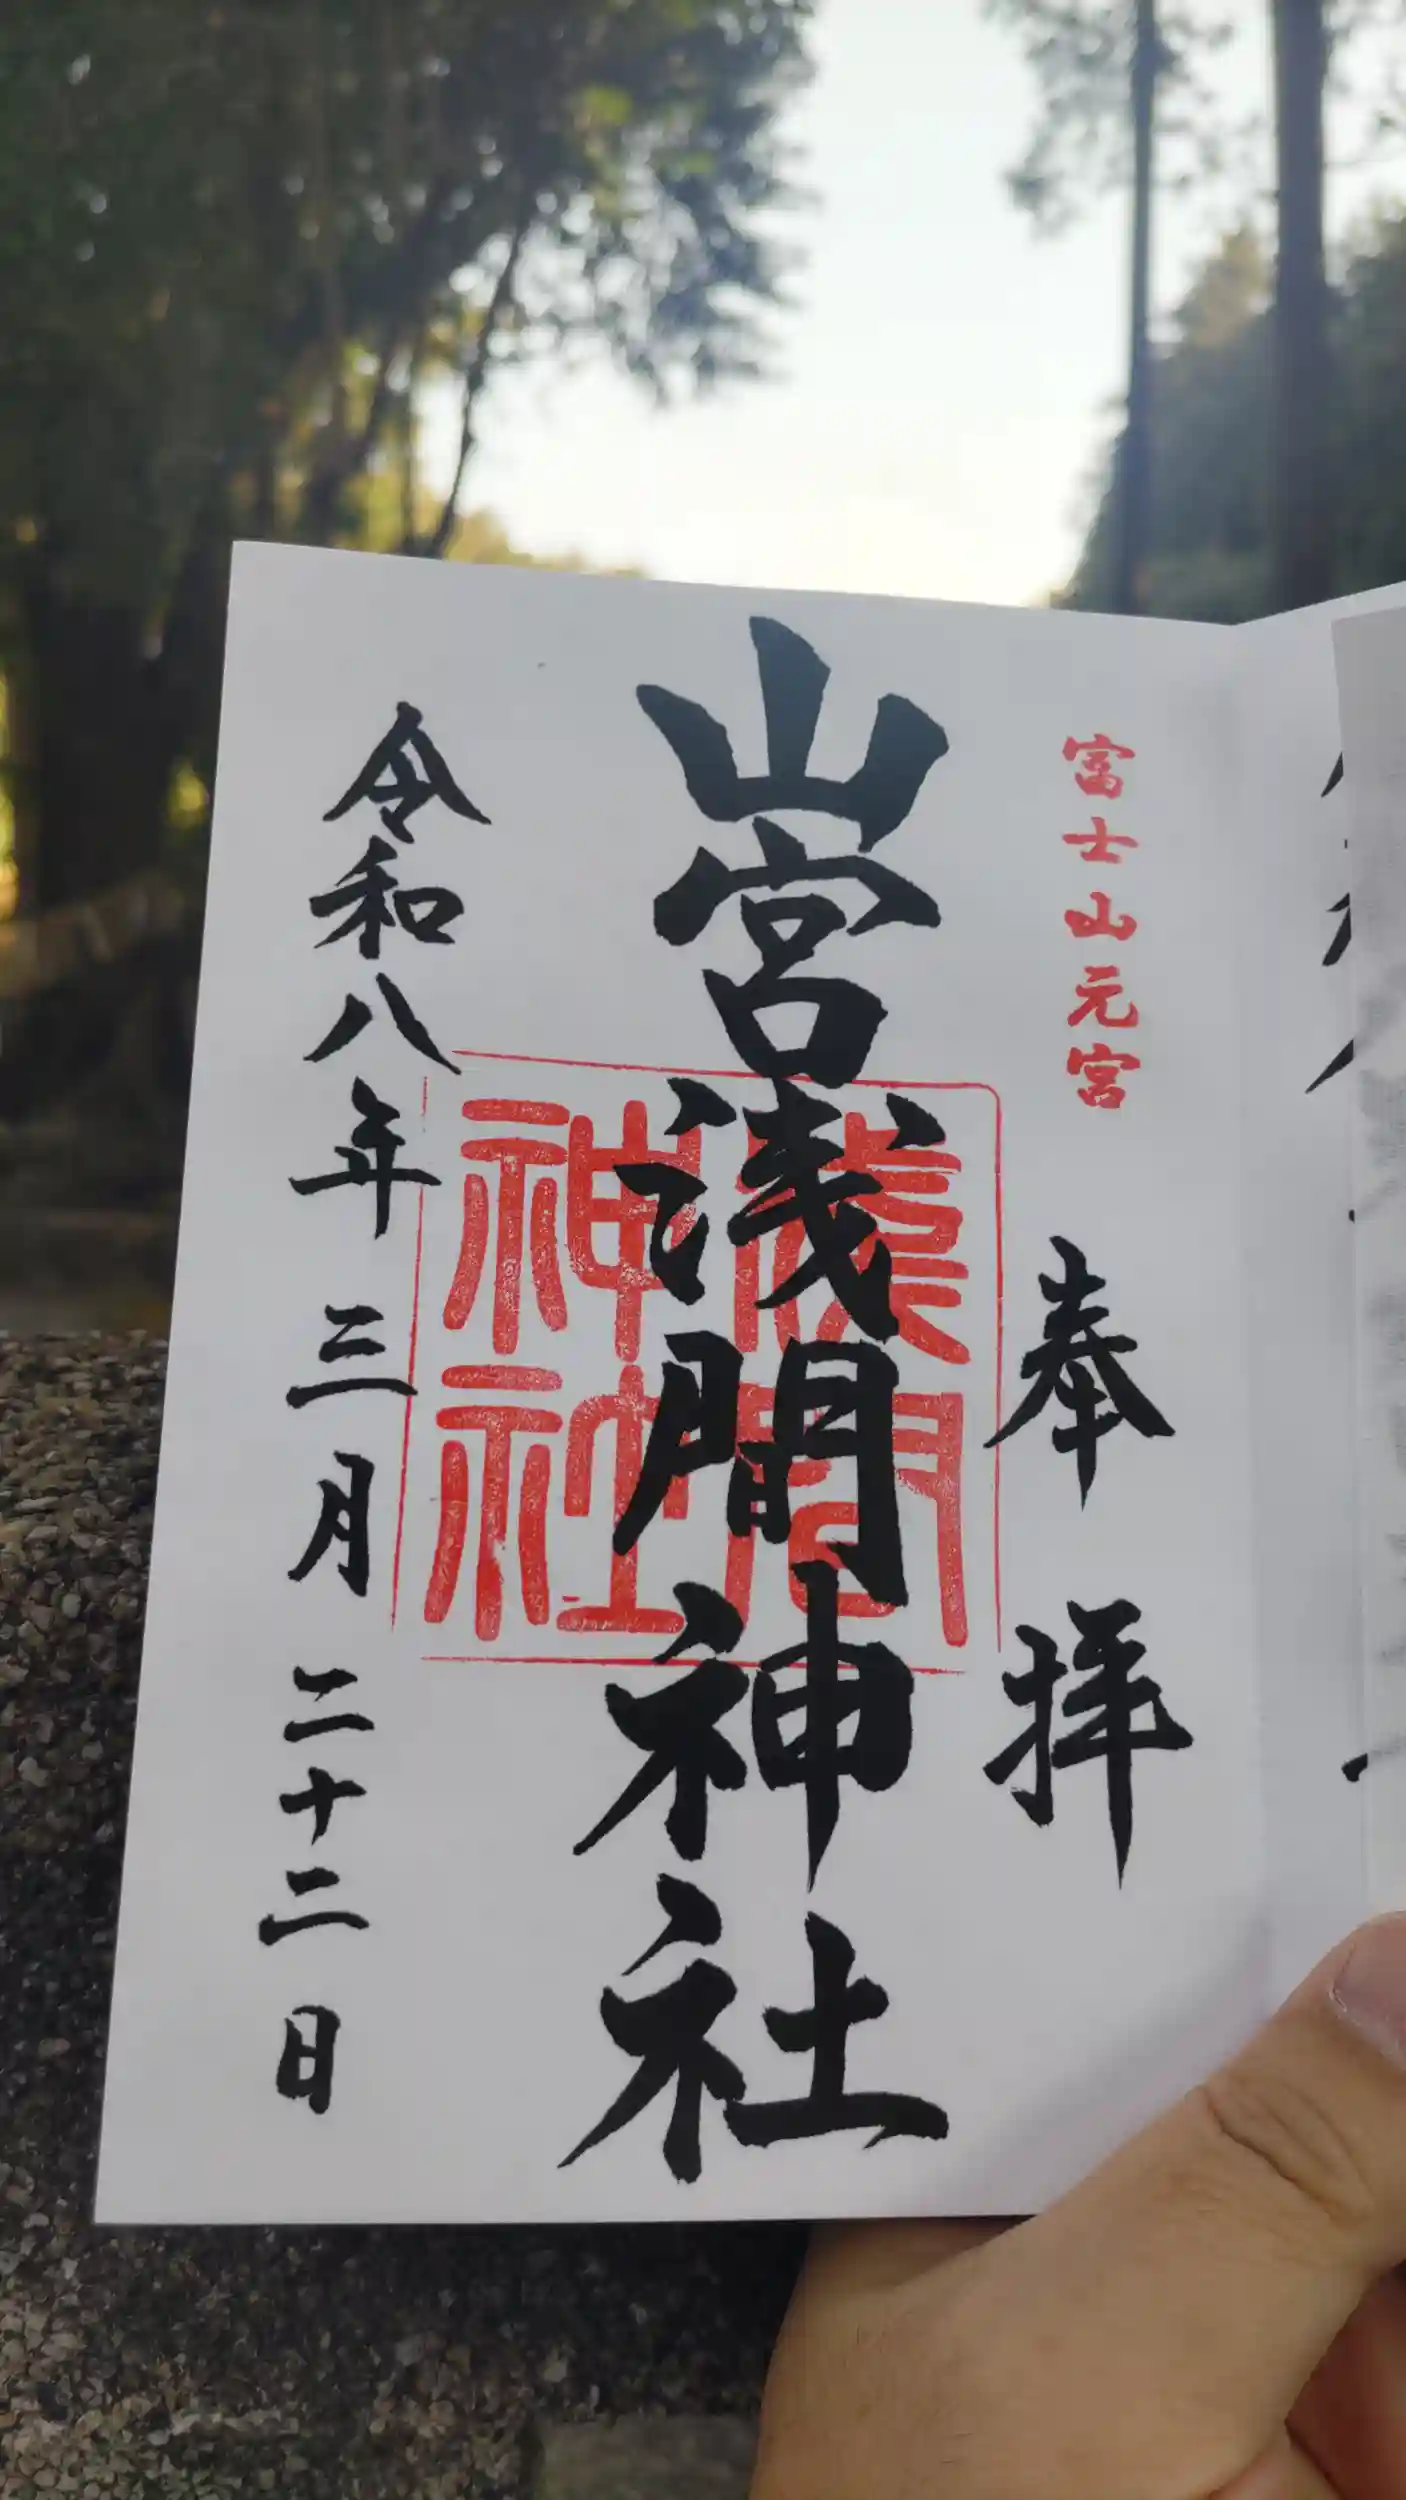 富士山元宮
奉拝
山宮浅間神社
淺間
神社
令和八年三月二十二日